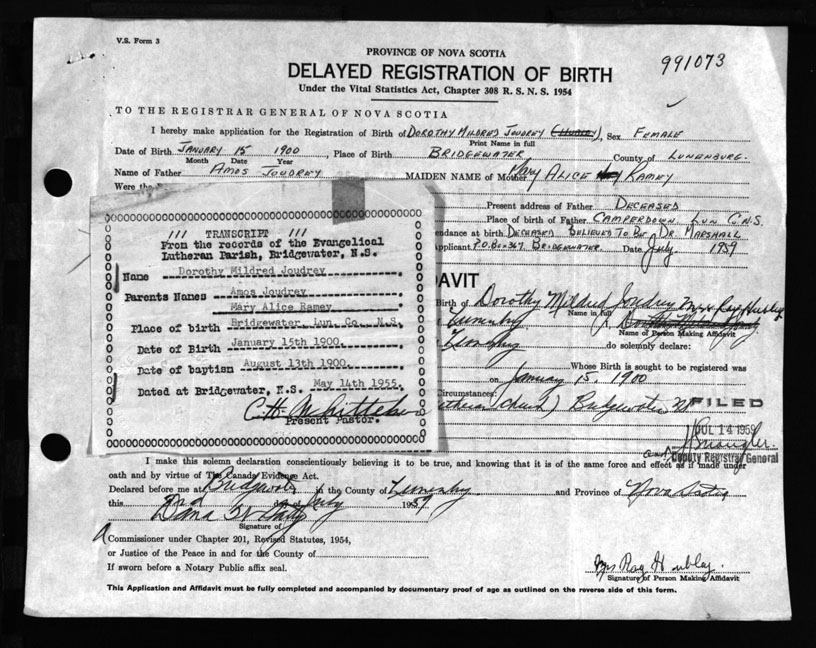 V.S. Form 3
991073
PROVINCE OF NOVA SCOTIA
DELAYED REGISTRATION OF BIRTH
Under the Vital Statistics Act, Chapter 308 R. S. N. S. 1954
TO THE REGISTRAR GENERAL OF NOVA SCOTIA
I hereby make application for the Registration of Birth of DOROTHY MILDRED JOUDREY Sex FEMALE
Print Name in full
Date of Birth JANUARY 15 1900, Place of Birth BRIDGEWATER County of LUNENBURG.
Month Date Year
Name of Father AMOS JOUDREY MAIDEN NAME of Mother Mary ALICE RAMEY
Were the
Present address of Father DECEASED
Place of birth of Father CAMPERDOWN, LUN C. N.S.
endance at birth DECEASED BELIEVED TO BE DR. MARSHALL
pplicant P.O. Box 367, BRIDGEWATER. Date July 1959
/// TRANSCRIPT ///
From the records of the Evangelical
Lutheran Parish, Bridgewater, N.S.
Name Dorothy Mildred Joudrey
Parents Names Amos Joudrey
Mary Alice Ramey
Place of birth Bridgewater, Lun. Co. N.S.
Date of Birth January 15th 1900.
Date of baptism August 13th 1900.
Dated at Bridgewater, N.S. May 14th 1955.
Present Pastor.
DAVIT
Birth of Dorothy Mildred Joudrey Mrs Ray Hubley
Name in full
Name of Person Making Affidavit
Lunenburg
do solemnly declare:
Whose Birth is sought to be registered was
on January 15. 1900
Circumstances:
Lutheran Church) Bridgewater NS
FILED
JUL 14 1959
Deputy Registrar General
I make this solemn declaration conscientiously believing it to be true, and knowing that it is of the same force and effect as if made under
oath and by virtue of The Canada Evidence Act.
Declared before me at Bridgewater in the County of Lunenburg and Province of Nova Scotia
this 2nd day of July 1959
Signature of
A Commissioner under Chapter 201, Revised Statutes, 1954,
or Justice of the Peace in and for the County of
If sworn before a Notary Public affix seal.
Mrs Ray Hubley
Signature of Person Making Affidavit
This Application and Affidavit must be fully completed and accompanied by documentary proof of age as outlined on the reverse side of this form.